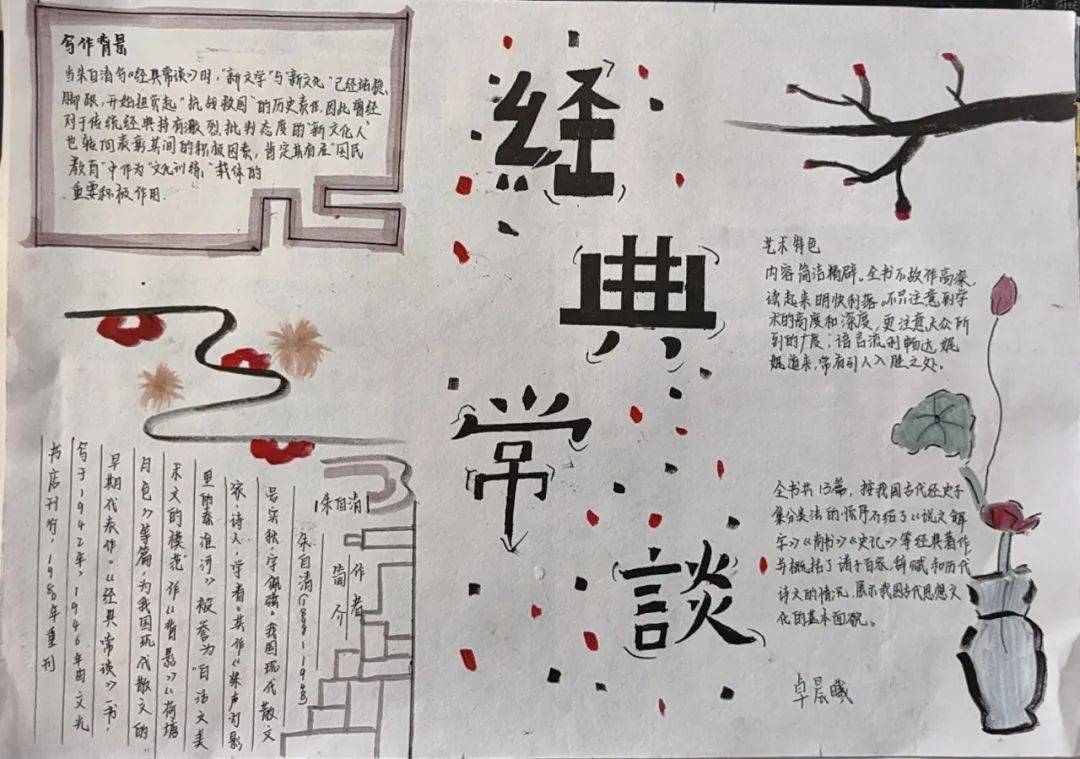 經
典
常
談
写作背景
当朱自清写《经典常谈》时，"新文学"与"新文化"已经站稳
脚跟，开始担负起"抗战救国"的历史责任。因此曾经
对于传统经典持有激烈批判态度的"新文化人"
也转向表彰其间的积极因素，肯定其有在"国民
教育"中作为"文化训练"载体的
重要积极作用.
艺术特色
内容简洁精辟。全书不故作高深，
读起来明快利落。不只注意到学
术的高度和深度，更注意大众所
到的广度；语言流利畅达，娓
娓道来，常有引人入胜之处。
全书共13篇，按我国古代经史子
集分类法的顺序介绍了《说文解
字》《尚书》《史记》等经典著作
与概括了诸子百家，辞赋和历代
诗文的情况，展示我国古代思想文
化的基本面貌。
卓晨曦
朱自清
作者
简介
朱自清(1898-1948)
号实秋，字佩弦。我国现代散文
家，诗人，学者。其作《桨声灯影
里的秦淮河》被誉为"白话文美
术文的模范"作《背影》《荷塘
月色》等篇，为我国现代散文的
早期代表作。《经典常谈》一书，
写于1942年，1946年由文光
书店刊行，1980年重刊